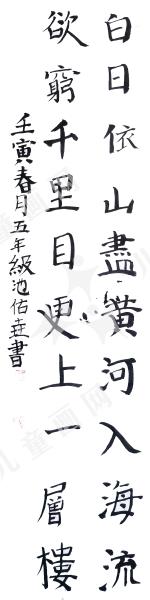 白日依山盡黃河入海流
欲窮千里目更上一層樓
壬寅春月五年級池佑垚書